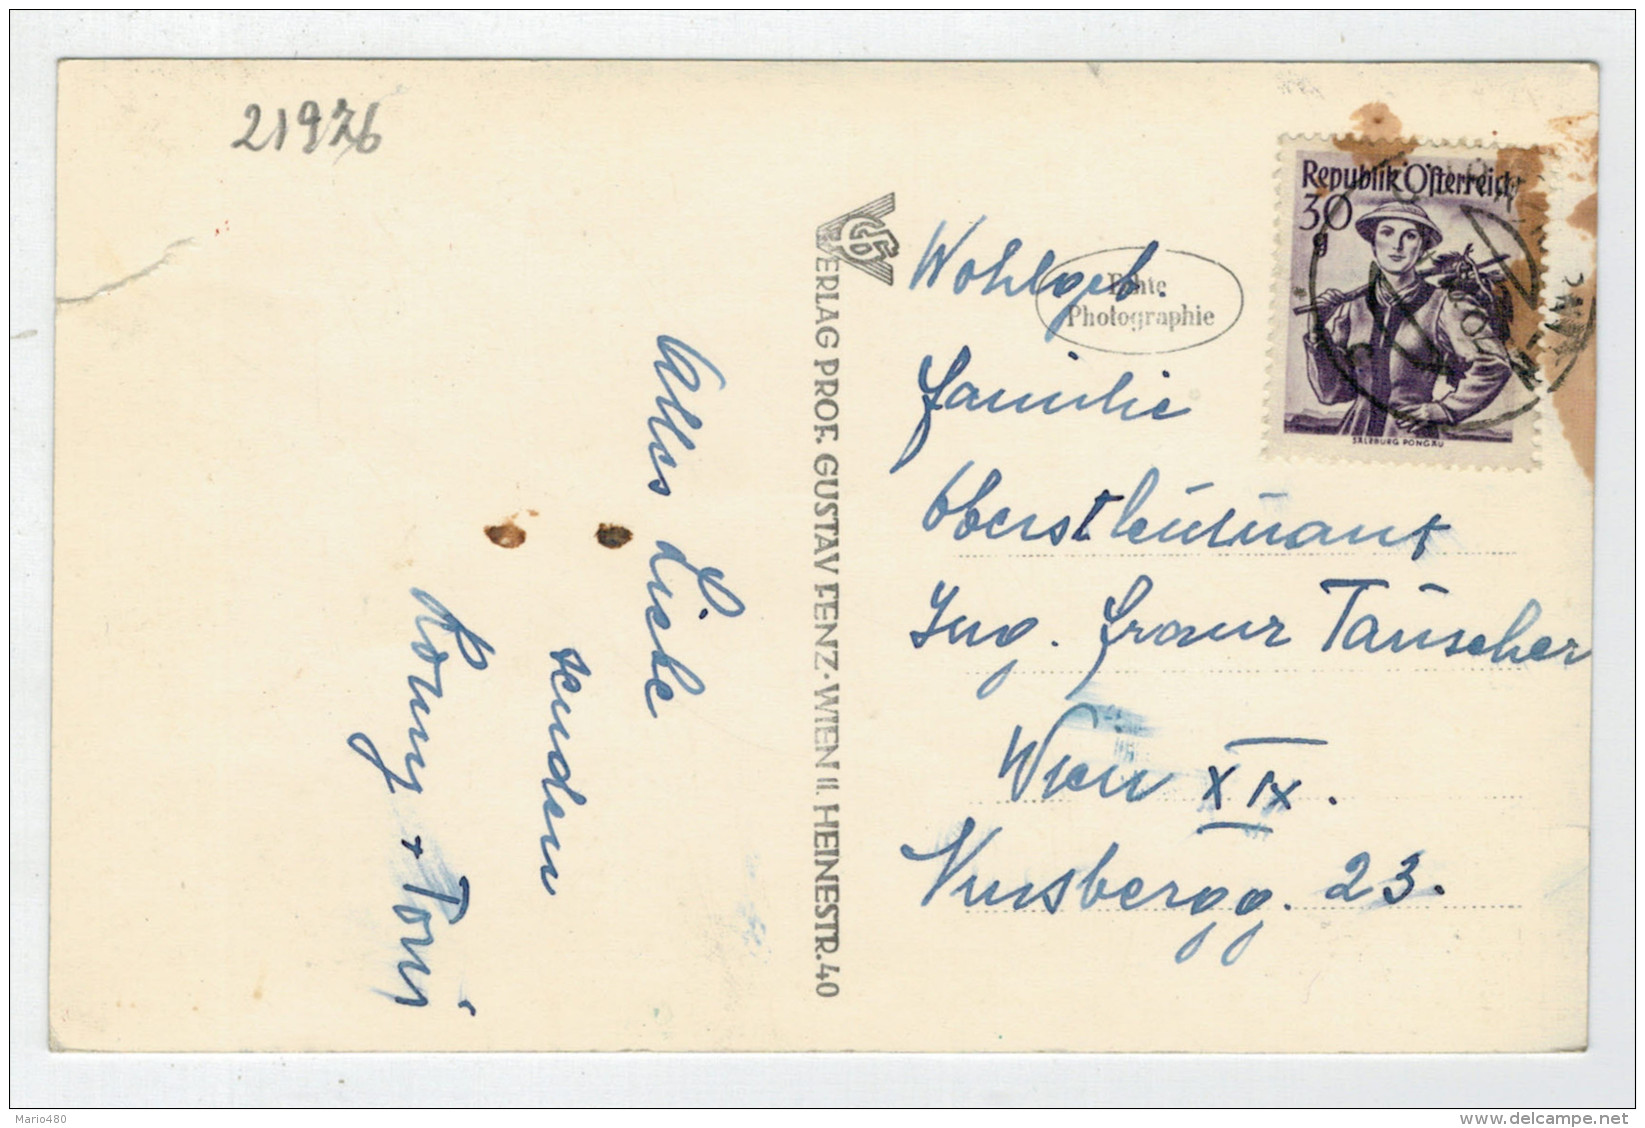 21926
Alles Liebe
senden
Romy + Toni
GF
VERLAG PROF. GUSTAV FENZ·WIEN II. HEINESTR.40
Echte
Photographie
Republik Österreich
30
g
SALZBURG PONGAU
Wohlgeb.
Familie
Oberstleutnant
Ing. Franz Täuscher
Wien XIX.
Nussbergg. 23.
Mario480
www.delcampe.net